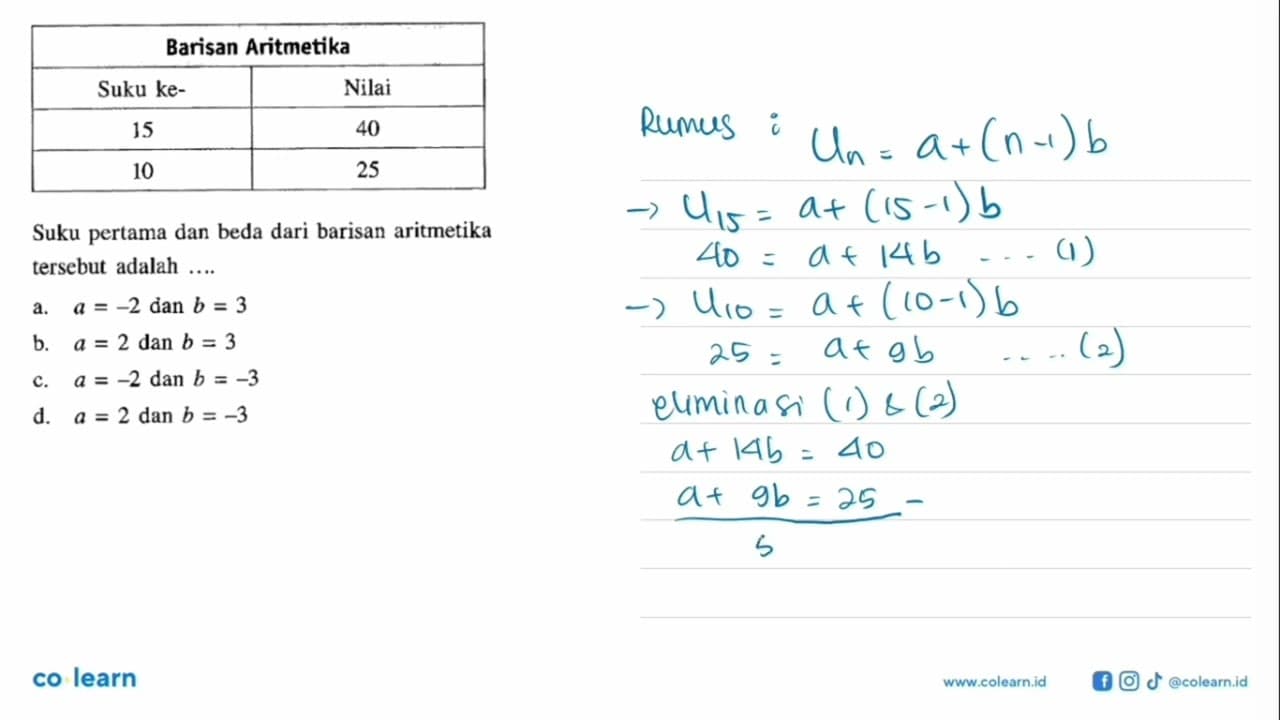 Barisan Aritmetika
Suku ke- Nilai
15 40
10 25
Suku pertama dan beda dari barisan aritmetika
tersebut adalah ....
a. a = –2 dan b = 3
b. a = 2 dan b = 3
c. a = –2 dan b = –3
d. a = 2 dan b = –3
Rumus : Un = a+(n-1)b
→ U15 = a+(15-1)b
40 = a+14b ....(1)
→ U10 = a+(10-1)b
25 = a+9b ....(2)
eliminasi (1) & (2)
a+14b = 40
a+ 9b = 25 –
5
co learn
www.colearn.id @colearn.id